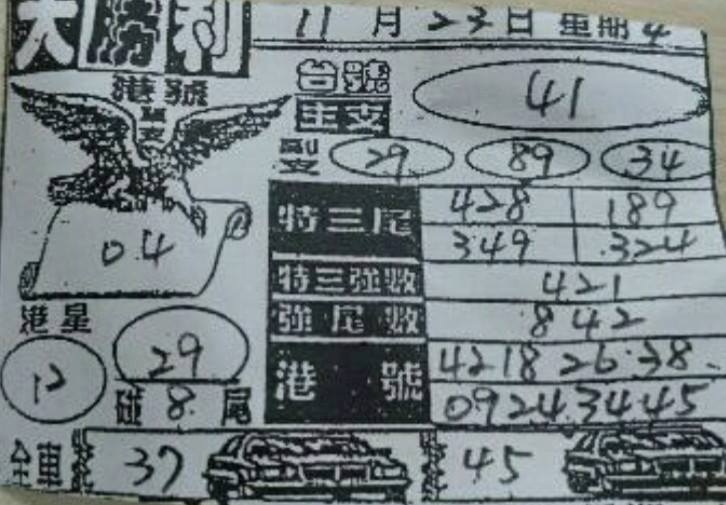 大勝利
11月23日 星期4
港號
單支
04
台號
主支
41
副支 29 89 34
特三尾 428 189
349 324
特三強數 421
強尾數 842
港星
12
29
碰 8 尾
港號 42 18 26 38
09 24 34 45
全車 37 45